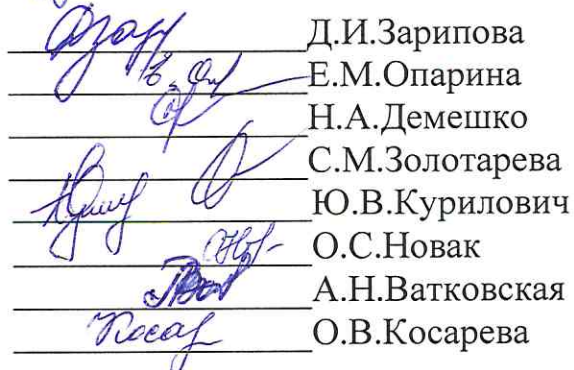 Д.И.Зарипова
Е.М.Опарина
Н.А.Демешко
С.М.Золотарева
Ю.В.Курилович
О.С.Новак
А.Н.Ватковская
Косар О.В.Косарева